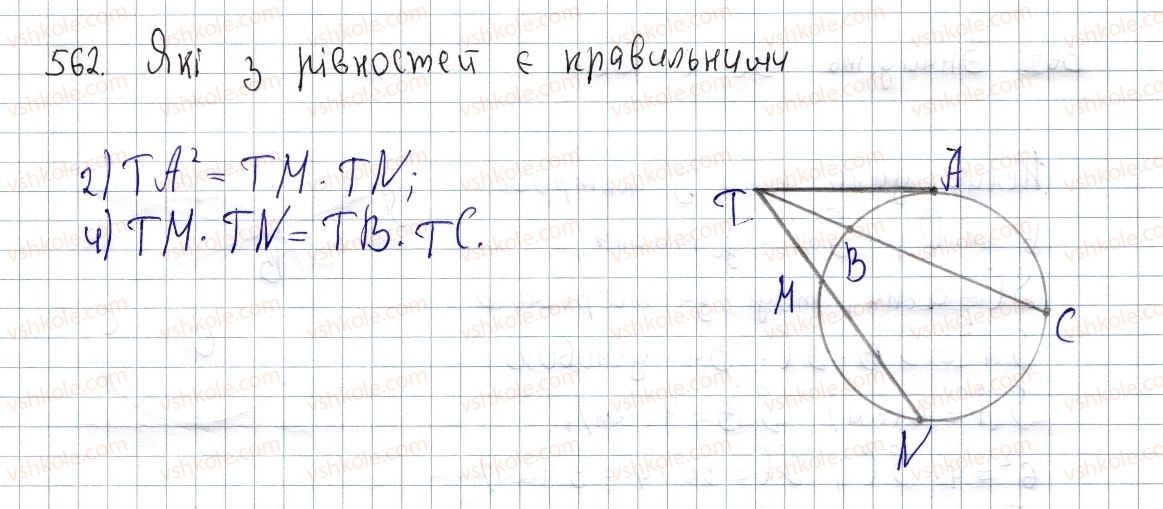 562. Які з рівностей є правильними
2) TA² = TM · TN;
4) TM · TN = TB · TC.
T
A
B
M
C
N
vshkole.com